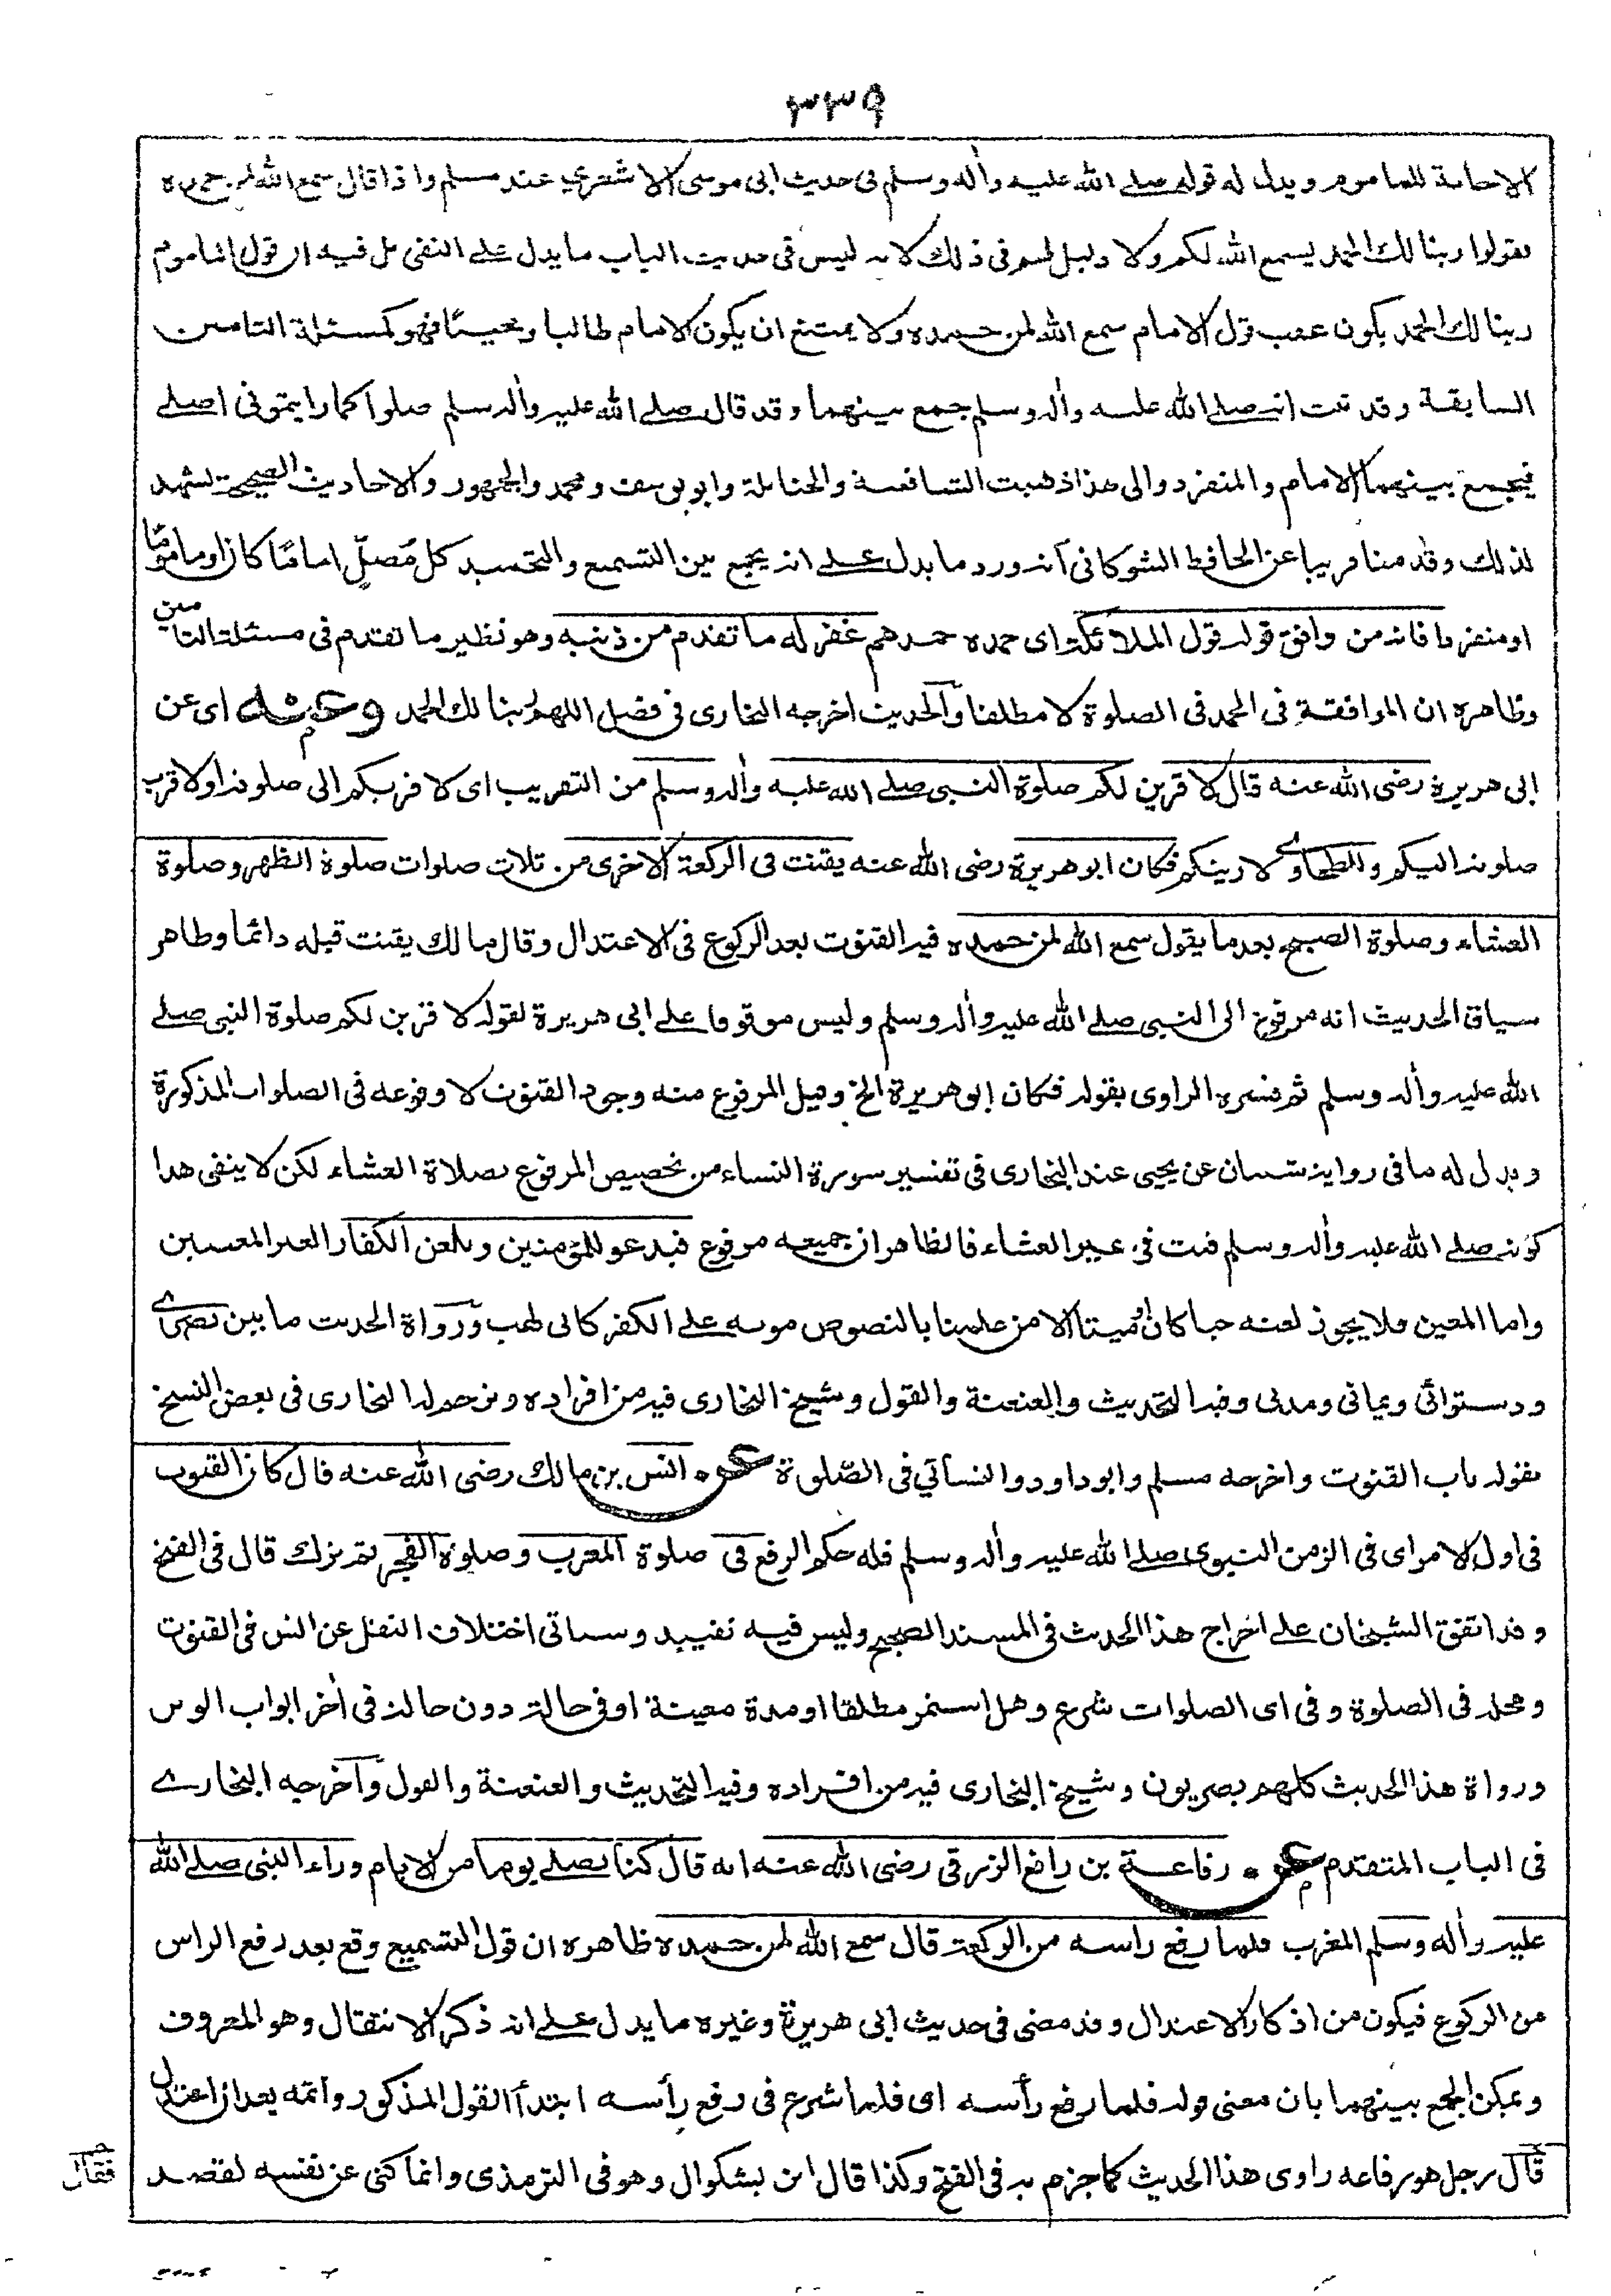 ٣٣٩
الاجابة للماموم ويدل له قوله صلے الله عليه وأله وسلم فى حديث ابى موسى الاشعرى عند مسلم واذا قال سمع الله لمن حمده
فقولوا ربنا لك الحمد يسمع الله لكم ولا دليل لهم فى ذلك لانه ليس فى حديث الباب ما يدل علے النفى بل فيه ان قول الماموم
ربنا لك الحمد يكون عقب قول الامام سمع الله لمن حمده ولا يمتنع ان يكون الامام طالبا ومجيبًا فهو كمسئلة التامين
السابقة وقد ثبت انه صلے الله عليه وأله وسلم جمع بينهما وقد قال صلے الله عليه وأله وسلم صلوا كما رايتمونى اصلے
فيجمع بينهما الامام والمنفرد والى هذا ذهبت الشافعية والحنابلة وابو يوسف ومحمد والجمهور والاحاديث الصحيحة تشهد
لذلك وقدمنا قريبا عن الحافظ الشوكانى أنه ورد ما يدل علے انه يجمع بين التسميع والتحميد كل مُصلٍّ امامًا كان او مامومًا
او منفردا فانه من وافق قوله قول الملائكة اى حمده حمدهم غفر له ما تقدم من ذنبه وهو نظير ما تقدم فى مسئلة التامين
وظاهره ان الموافقة فى الحمد فى الصلوة لا مطلقا والحديث اخرجه البخارى فى فضل اللهم ربنا لك الحمد وعنه اى عن
ابى هريرة رضى الله عنه قال لاقربن لكم صلوة النبى صلے الله عليه وأله وسلم من التقريب اى لاقربكم الى صلوته او لاقرب
صلوته اليكم وللطحاوے لارينكم فكان ابو هريرة رضى الله عنه يقنت فى الركعة الاخرى من ثلاث صلوات صلوة الظهر وصلوة
العشاء وصلوة الصبح بعد ما يقول سمع الله لمن حمده فيه القنوت بعد الركوع فى الاعتدال وقال مالك يقنت قبله دائما وظاهر
سياق الحديث انه مرفوع الى النبى صلے الله عليه وأله وسلم وليس موقوفا على ابى هريرة لقوله لاقربن لكم صلوة النبى صلے
الله عليه وأله وسلم ثم فسره الراوى بقوله فكان ابو هريرة الخ وقيل المرفوع منه وجود القنوت لا وقوعه فى الصلوات المذكورة
ويدل له ما فى رواية شيبان عن يحيى عند البخارى فى تفسير سورة النساء من تخصيص المرفوع بصلاة العشاء لكن لا ينفى هذا
كونه صلے الله عليه وأله وسلم قنت فى غير العشاء فالظاهر ان جميعه مرفوع فيدعو للمؤمنين ويلعن الكفار الغير المعينين
واما المعين فلا يجوز لعنه حيا كان او ميتا الا من علمنا بالنصوص موته علے الكفر كابى لهب ورواة الحديث ما بين بصرى
ودستوائى ويمانى ومدنى وفيه التحديث والعنعنة والقول وشيخ البخارى فيه من افراده وترجم له البخارى فى بعض النسخ
بقوله باب القنوت واخرجه مسلم وابو داود والنسائي فى الصّلوة عن انس بن مالك رضى الله عنه قال كان القنوت
فى اول الامر اى فى الزمن النبوى صلے الله عليه وأله وسلم فله حكم الرفع فى صلوة المغرب وصلوة الفجر ثم ترك قال فى الفتح
وقد اتفق الشيخان علے اخراج هذا الحديث فى المسند الصحيح وليس فيه تقييد وسياتى اختلاف النقل عن انس فى القنوت
ومحله فى الصلوة وفى اى الصلوات شرع وهل استمر مطلقا او مدة معينة او فى حالة دون حالة فى أخر ابواب الوتر
ورواة هذا الحديث كلهم بصريون وشيخ البخارى فيه من افراده وفيه التحديث والعنعنة والقول وأخرجه البخارے
فى الباب المتقدم عن رفاعة بن رافع الزرقى رضى الله عنه انه قال كنا نصلے يوما من الايام وراء النبى صلے الله
عليه وأله وسلم المغرب فلما رفع راسه من الركعة قال سمع الله لمن حمده ظاهره ان قول التسميع وقع بعد رفع الراس
من الركوع فيكون من اذكار الاعتدال وقد مضى فى حديث ابى هريرة وغيره ما يدل علے انه ذكر الانتقال وهو المعروف
ويمكن الجمع بينهما بان معنى قوله فلما رفع رأسه اى فلما شرع فى رفع رأسه ابتدأ القول المذكور واتمه بعد ان اعتدل
قال رجل هو رفاعه راوى هذا الحديث كما جزم به فى الفتح وكذا قال ابن بشكوال وهو فى الترمذى وانما كنى عن نفسه لقصد
فقال